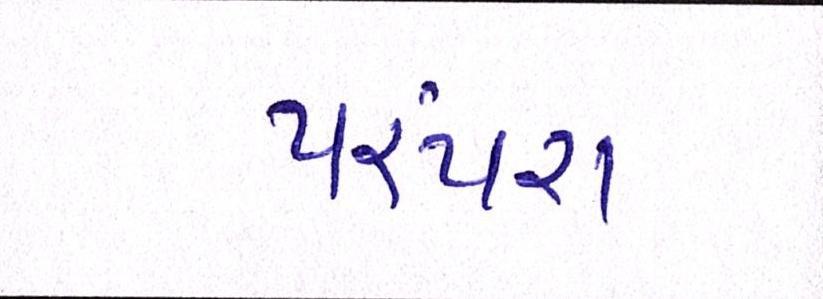 પરંપરા